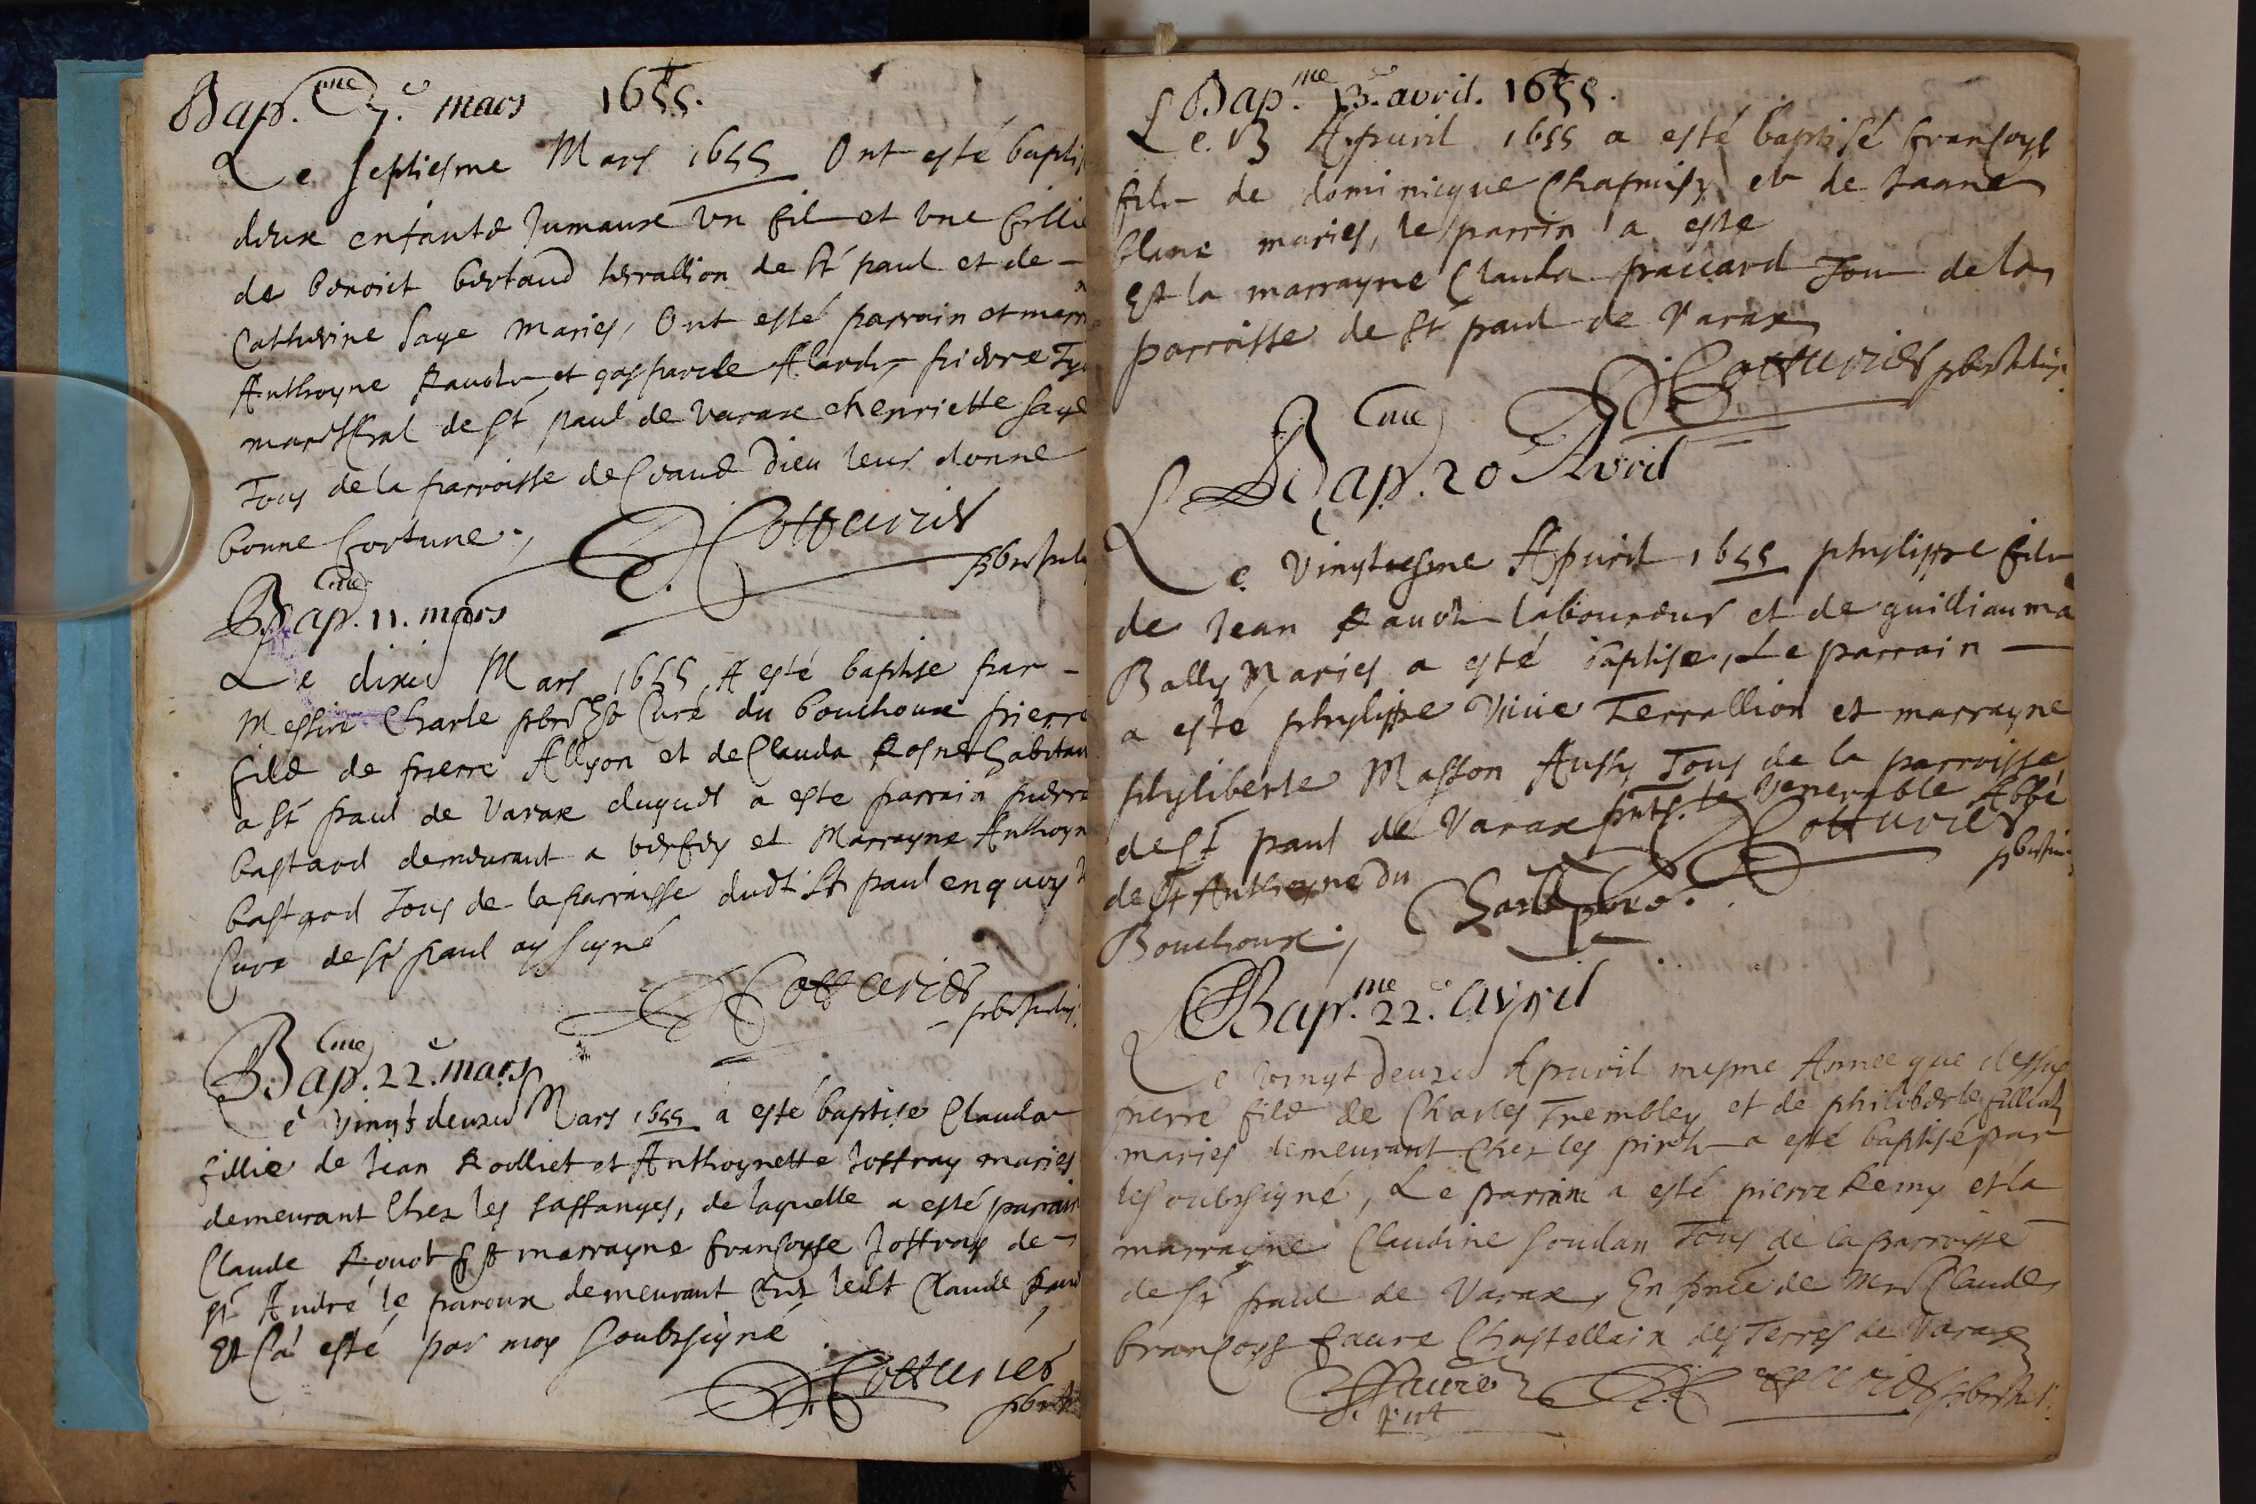 Bap.me 7.e mars 1655.
Le septiesme Mars 1655 Ont esté baptis
deux enfants Jumaux un fil et une fillie
de benoict bertaud terrallion de St paul et de
Catherine Saye maries, Ont esté parrain et marr
Anthoyne Ravot et gasparde Alard, pierre
mareschal de St paul de varax et henriette Saye
Tous de la parroisse de Dieu leur donne
bonne fortune.,
Cotteurier
Bap.me 11. mars
Le Mars 1655 A esté baptise par
Messire Charle pbre Curé du bouchoux pierre
filz de pierre Allyon et de Clauda Rosnet habitan
a St paul de Varax duquel a este parrain pierre
bastard demeurant a et Marrayne Anthoyn
bastard Tous de la parroisse dudt St paul en quoy
Cure de St paul ay signé
Cotteurier
Bap.me 22.e mars
Le vingt Mars 1655 a esté baptise Clauda
fillie de Jean Rolliet et Anthoynette Joffray maries
demeurant Chez les saffanges, de laquelle a esté parrain
Claude Rouot Et marrayne françoyse Joffray de
St André le panoux demeurant Chez ledt Claude
Et Ca esté par moy Soubsigné
Cotteurier
Bap.me 13.e avril. 1655.
Le. 13 Apuril 1655 a esté baptisé françoys
filz de dominicque Chapuis et de Jaane
blanc maries, le parrin a este
Et la marrayne Clauda praccard Tou de la
parroisse de St paul de Varax
Cotteurier
Bap.me 20 Avril
Le Vingtiesme Apuril 1655 phylippe filz
de Jean Ravot laboureur et de guilliauma
Bally Maries a esté baptise, Le parrain
a esté phylippe Terrallion et marrayne
phyliberte Masson Aussy Tous de la parroisse
de St paul de Varax le Venerable Abbé
de St Anthoyne du
Bouchoux.,
Cotteurier
Bap.me 22.e avril
Le vingt Apuril mesme Annee que dessus
pierre filz de Charles Trembley et de philiberte
maries demeurant Chez les a esté baptisé par
le soubsigné, Le parrain a esté pierre Remy et la
marrayne Claudine Goudan Tous de la parroisse
de St paul de Varax, En de Claude
françoys faure Chastellain des Terres de Varax
Faure Cotteurier